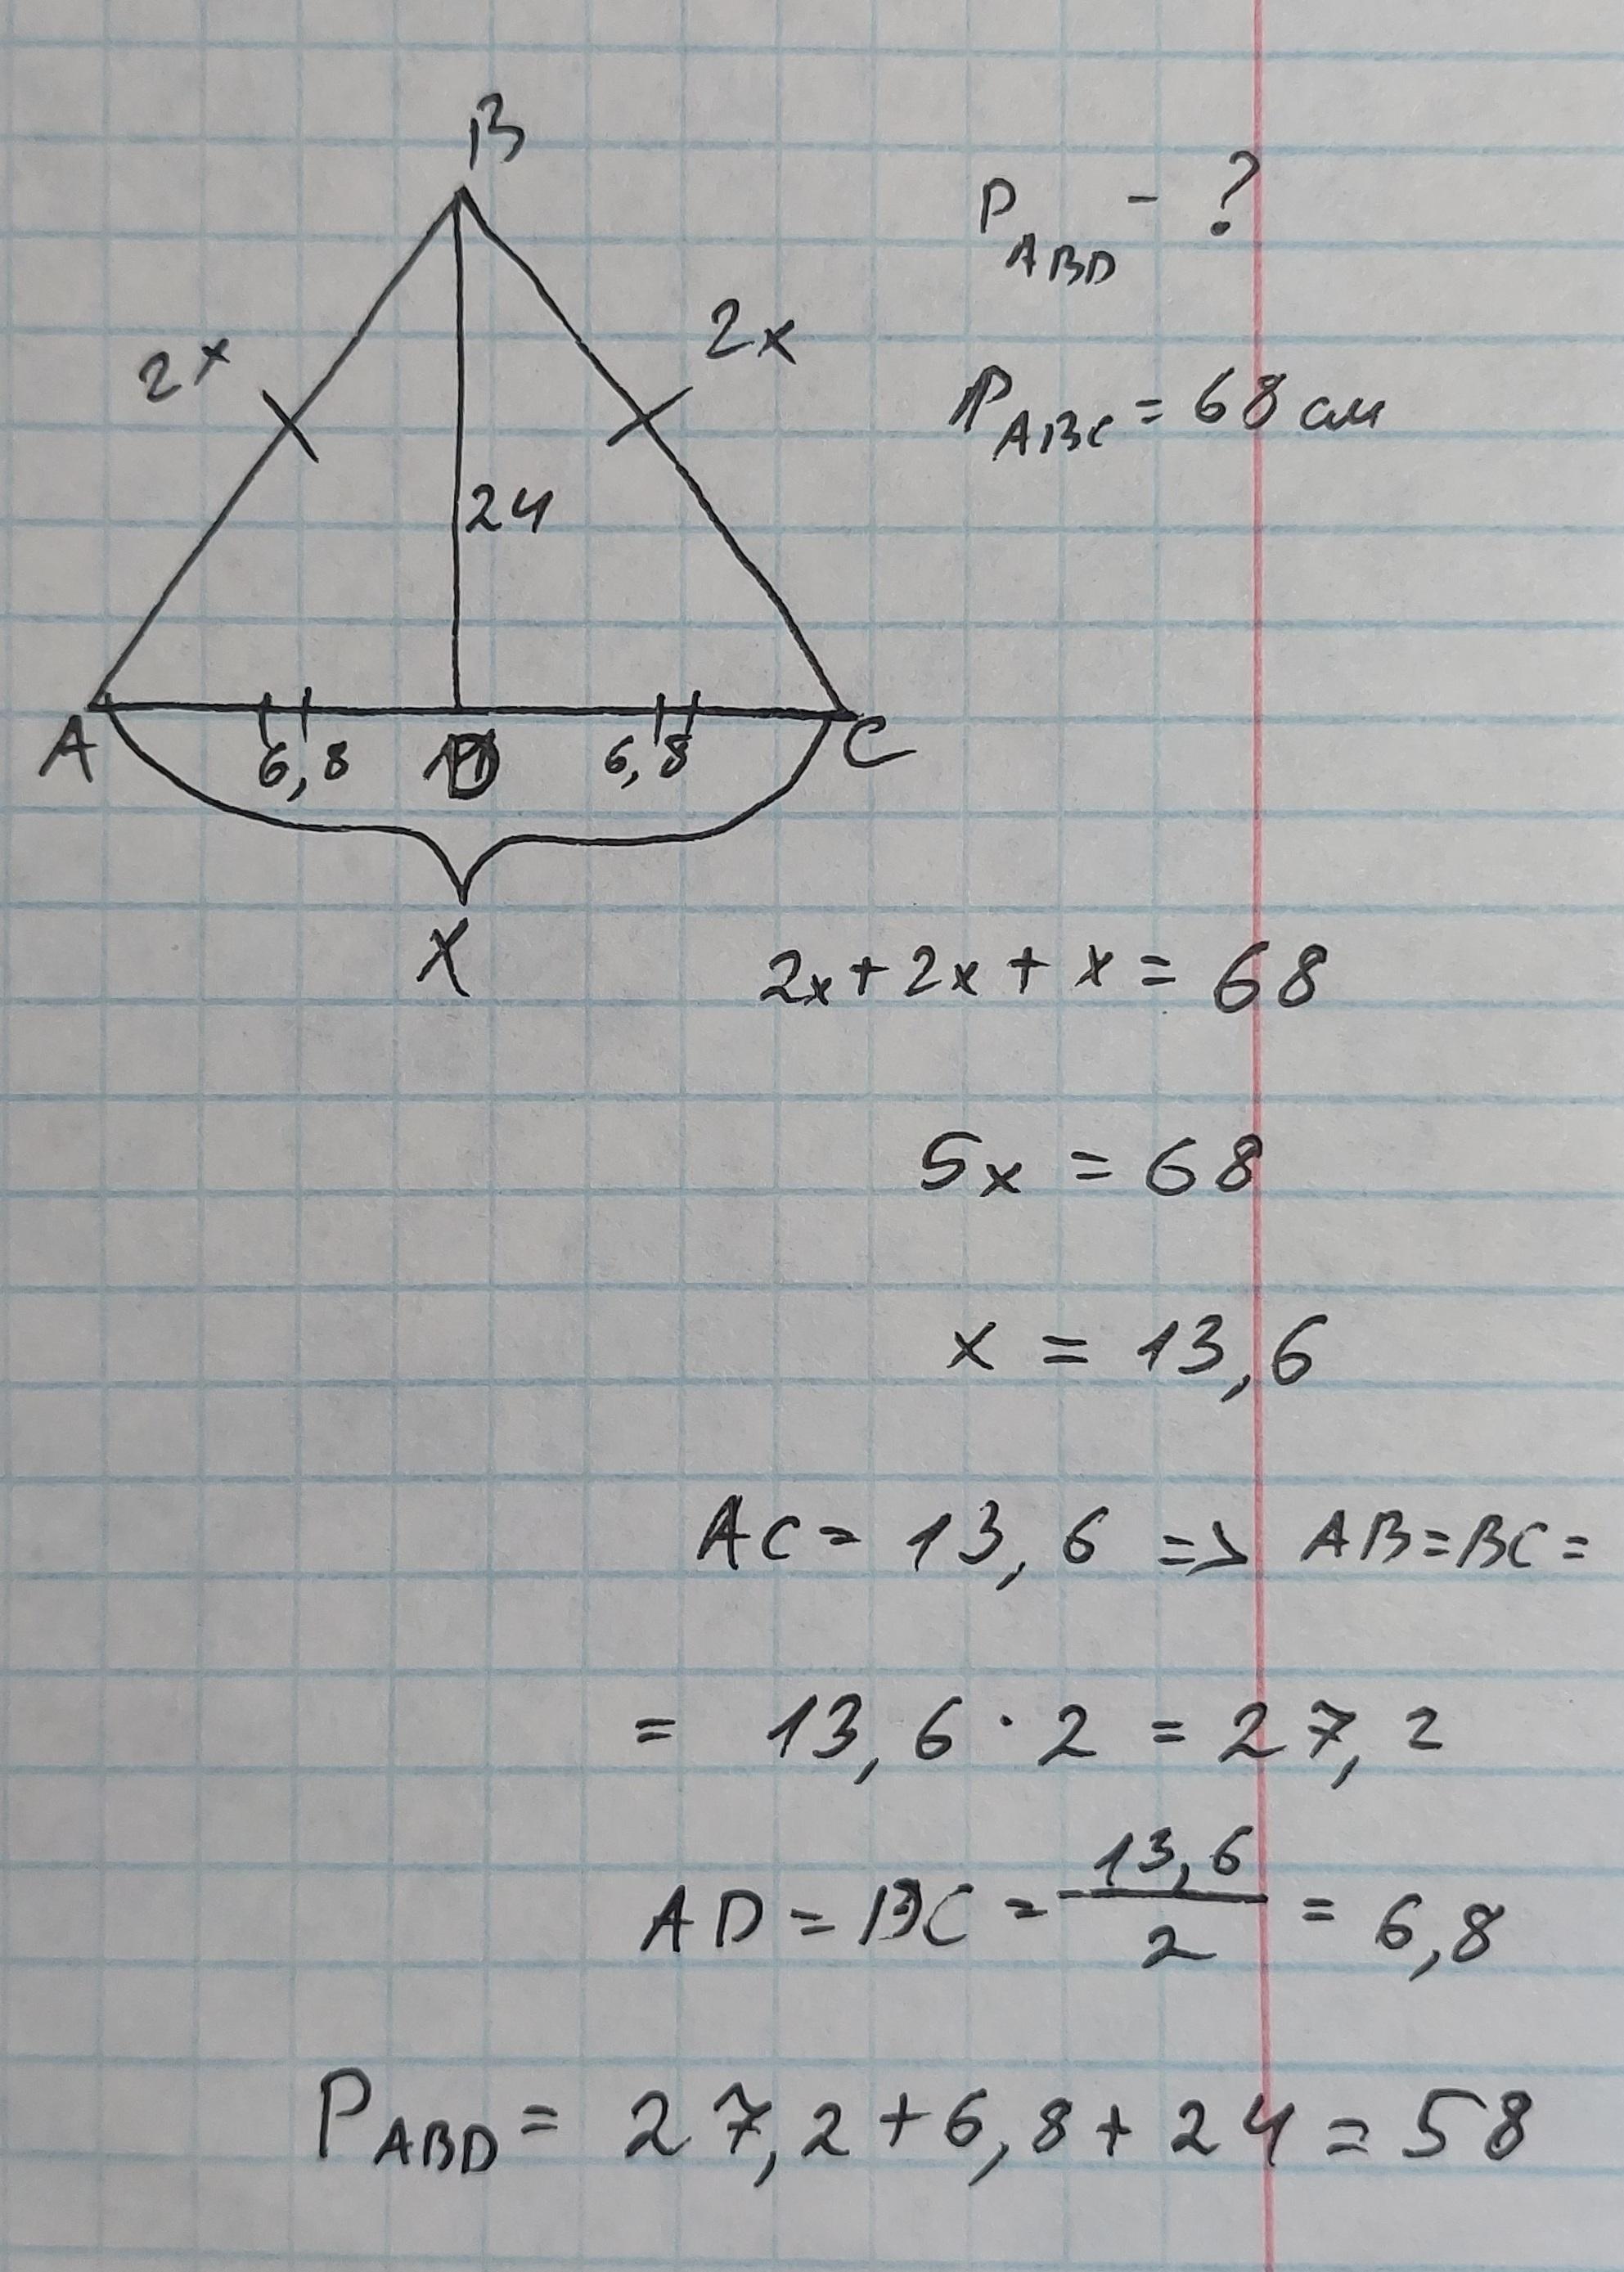 B
P ABD - ?
2x
2x
P ABC = 68 см
24
A
6,8
D
6,8
C
x
2x + 2x + x = 68
5x = 68
x = 13,6
AC = 13,6 => AB = BC =
= 13,6 · 2 = 27,2
AD = BC = 13,6/2 = 6,8
P ABD = 27,2 + 6,8 + 24 = 58